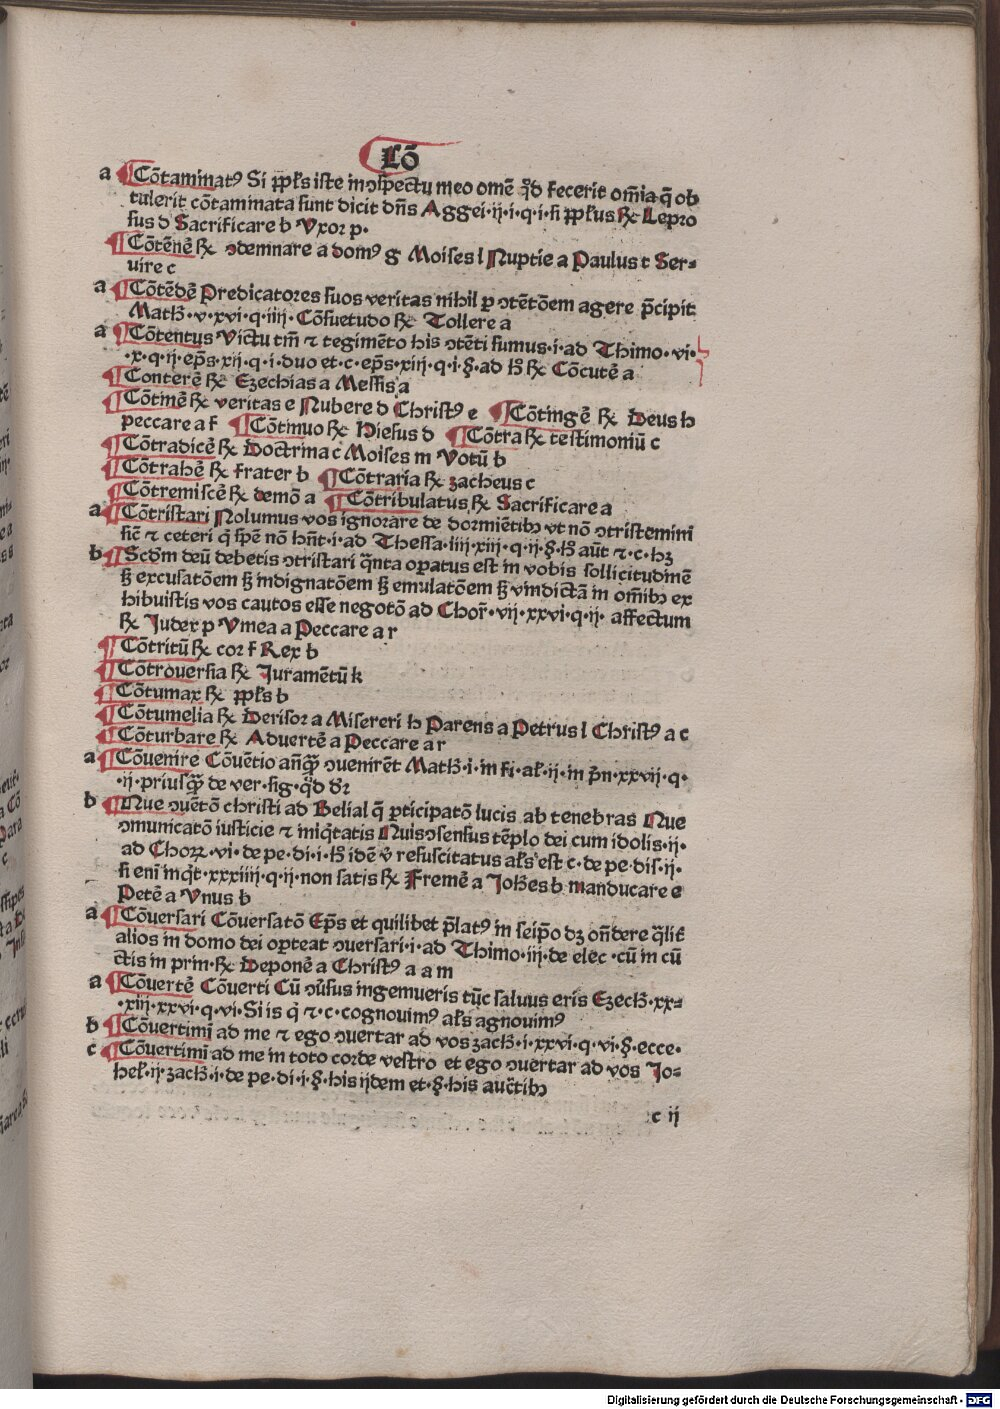 Cō
a ¶Cōtaminatꝰ Si ppl's iste in ↄspectu meo omē qd̄ fecerit om̄ia q̄ ob
tulerit cōtaminata sunt dicit dn̄s Aggei·ij·i·q·i·si ppl'us ℞ Lepro
sus d Sacrificare b Vxor p·
¶Cōtēnē ℞ ↄdemnare a domꝰ g Moises l Nuptie a Paulus t Ser-
uire c
a ¶Cōtēdē Predicatores suos veritas nihil p ↄtētōem agere p̄cipit
Math̄·v·xvi·q·iiij·Cōsuetudo ℞ Tollere a
a ¶Cōtentus Victu tm̄ ⁊ tegimēto his ↄtēti sumus·i·ad Thimo·vi·
·x·q·ij·ep̄s·xij·q·i·duo et·c·ep̄s·xiij·q·i·§·ad h̄º ℞ Cōcutē a
¶Conterē ℞ Ezechias a Messis a
¶Cōtinē ℞ veritas e Nubere d Christꝰ e ¶Cōtingē ℞ Deus h
peccare a f ¶Cōtinuo ℞ Hiesus d ¶Cōtra ℞ testimoniū c
¶Cōtradicē ℞ Doctrina c Moises m Votū b
¶Cōtrahē ℞ frater b ¶Cōtraria ℞ zacheus c
¶Cōtremiscē ℞ demō a ¶Cōtribulatus ℞ Sacrificare a
a ¶Cōtristari Nolumus vos ignorare de dormiētibꝫ vt nō ↄtristemini
sic̄ ⁊ ceteri q̄ spē nō hn̄t·i·ad Thessa·iiij·xiij·q·ij·§·h̄º aūt ⁊·c·hꝫ
b ¶Scdm̄ deū debetis ↄtristari q̄nta oꝑatus est in vobis sollicitudinē
sꝫ excusatōem sꝫ indignatōem sꝫ emulatōem sꝫ vindictā in om̄ibꝫ ex
hibuistis vos cautos esse negotō ad Chor̄·vij·xxvi·q·ij· affectum
℞ Judex p Vinea a Peccare a r
¶Cōtritū ℞ cor f Rex b
¶Cōtrouersia ℞ Juramētū k
¶Cōtumax ℞ ppl's b
¶Cōtumelia ℞ Derisor a Misereri h Parens a Petrus l Christꝰ a c
¶Cōturbare ℞ Aduertē a Peccare a r
a ¶Cōuenire Cōuētio an̄q̄ ↄuenirēt Math̄·i·in fi·al'·ij·in p̄n·xxvij·q·
·ij·priusq̄ de ver·sig·qd̄ dr̄
b ¶Que ↄuētō christi ad Belial q̄ ꝑticipatō lucis ab tenebras Que
ↄmunicatō iusticie ⁊ iniq̇tatis Quis ↄsensus tēplo dei cum idolis·ij·
ad Choꝝ·vi·de pe·di·i·h̄º idē v̄ resuscitatus al's est c·de pe·dis·ij·
si eni īnq̇t·xxxiiij·q·ij·non satis ℞ Fremē a Joh̄es b manducare e
Petē a Vnus b
a ¶Cōuersari Cōuersatō Ep̄s et quilibet p̄latꝰ in seip̄o dꝫ on̄dere q̄lit̄
alios in domo dei oꝑteat ↄuersari·i·ad Thimo·iij·de elec·cū in cū
ctis in prin·℞ Deponē a Christꝰ a a m
a ¶Cōuertē Cōuerti Cū ↄv̄sus ingemueris tūc saluus eris Ezech̄·xx-
·xiij·xxvi·q·vi·Si is q̇ ⁊·c·cognouimꝰ al's agnouimꝰ
b ¶Cōuertimī ad me ⁊ ego ↄuertar ad vos zach̄·i·xxvi·q·vi·§·ecce·
c ¶Cōuertimī ad me in toto corde vestro et ego ↄuertar ad vos Jo-
hel'·ij·zach̄·i·de pe·di·i·§·his ijdem et·§·his auc̄tibꝫ
c ij
Digitalisierung gefördert durch die Deutsche Forschungsgemeinschaft - DFG